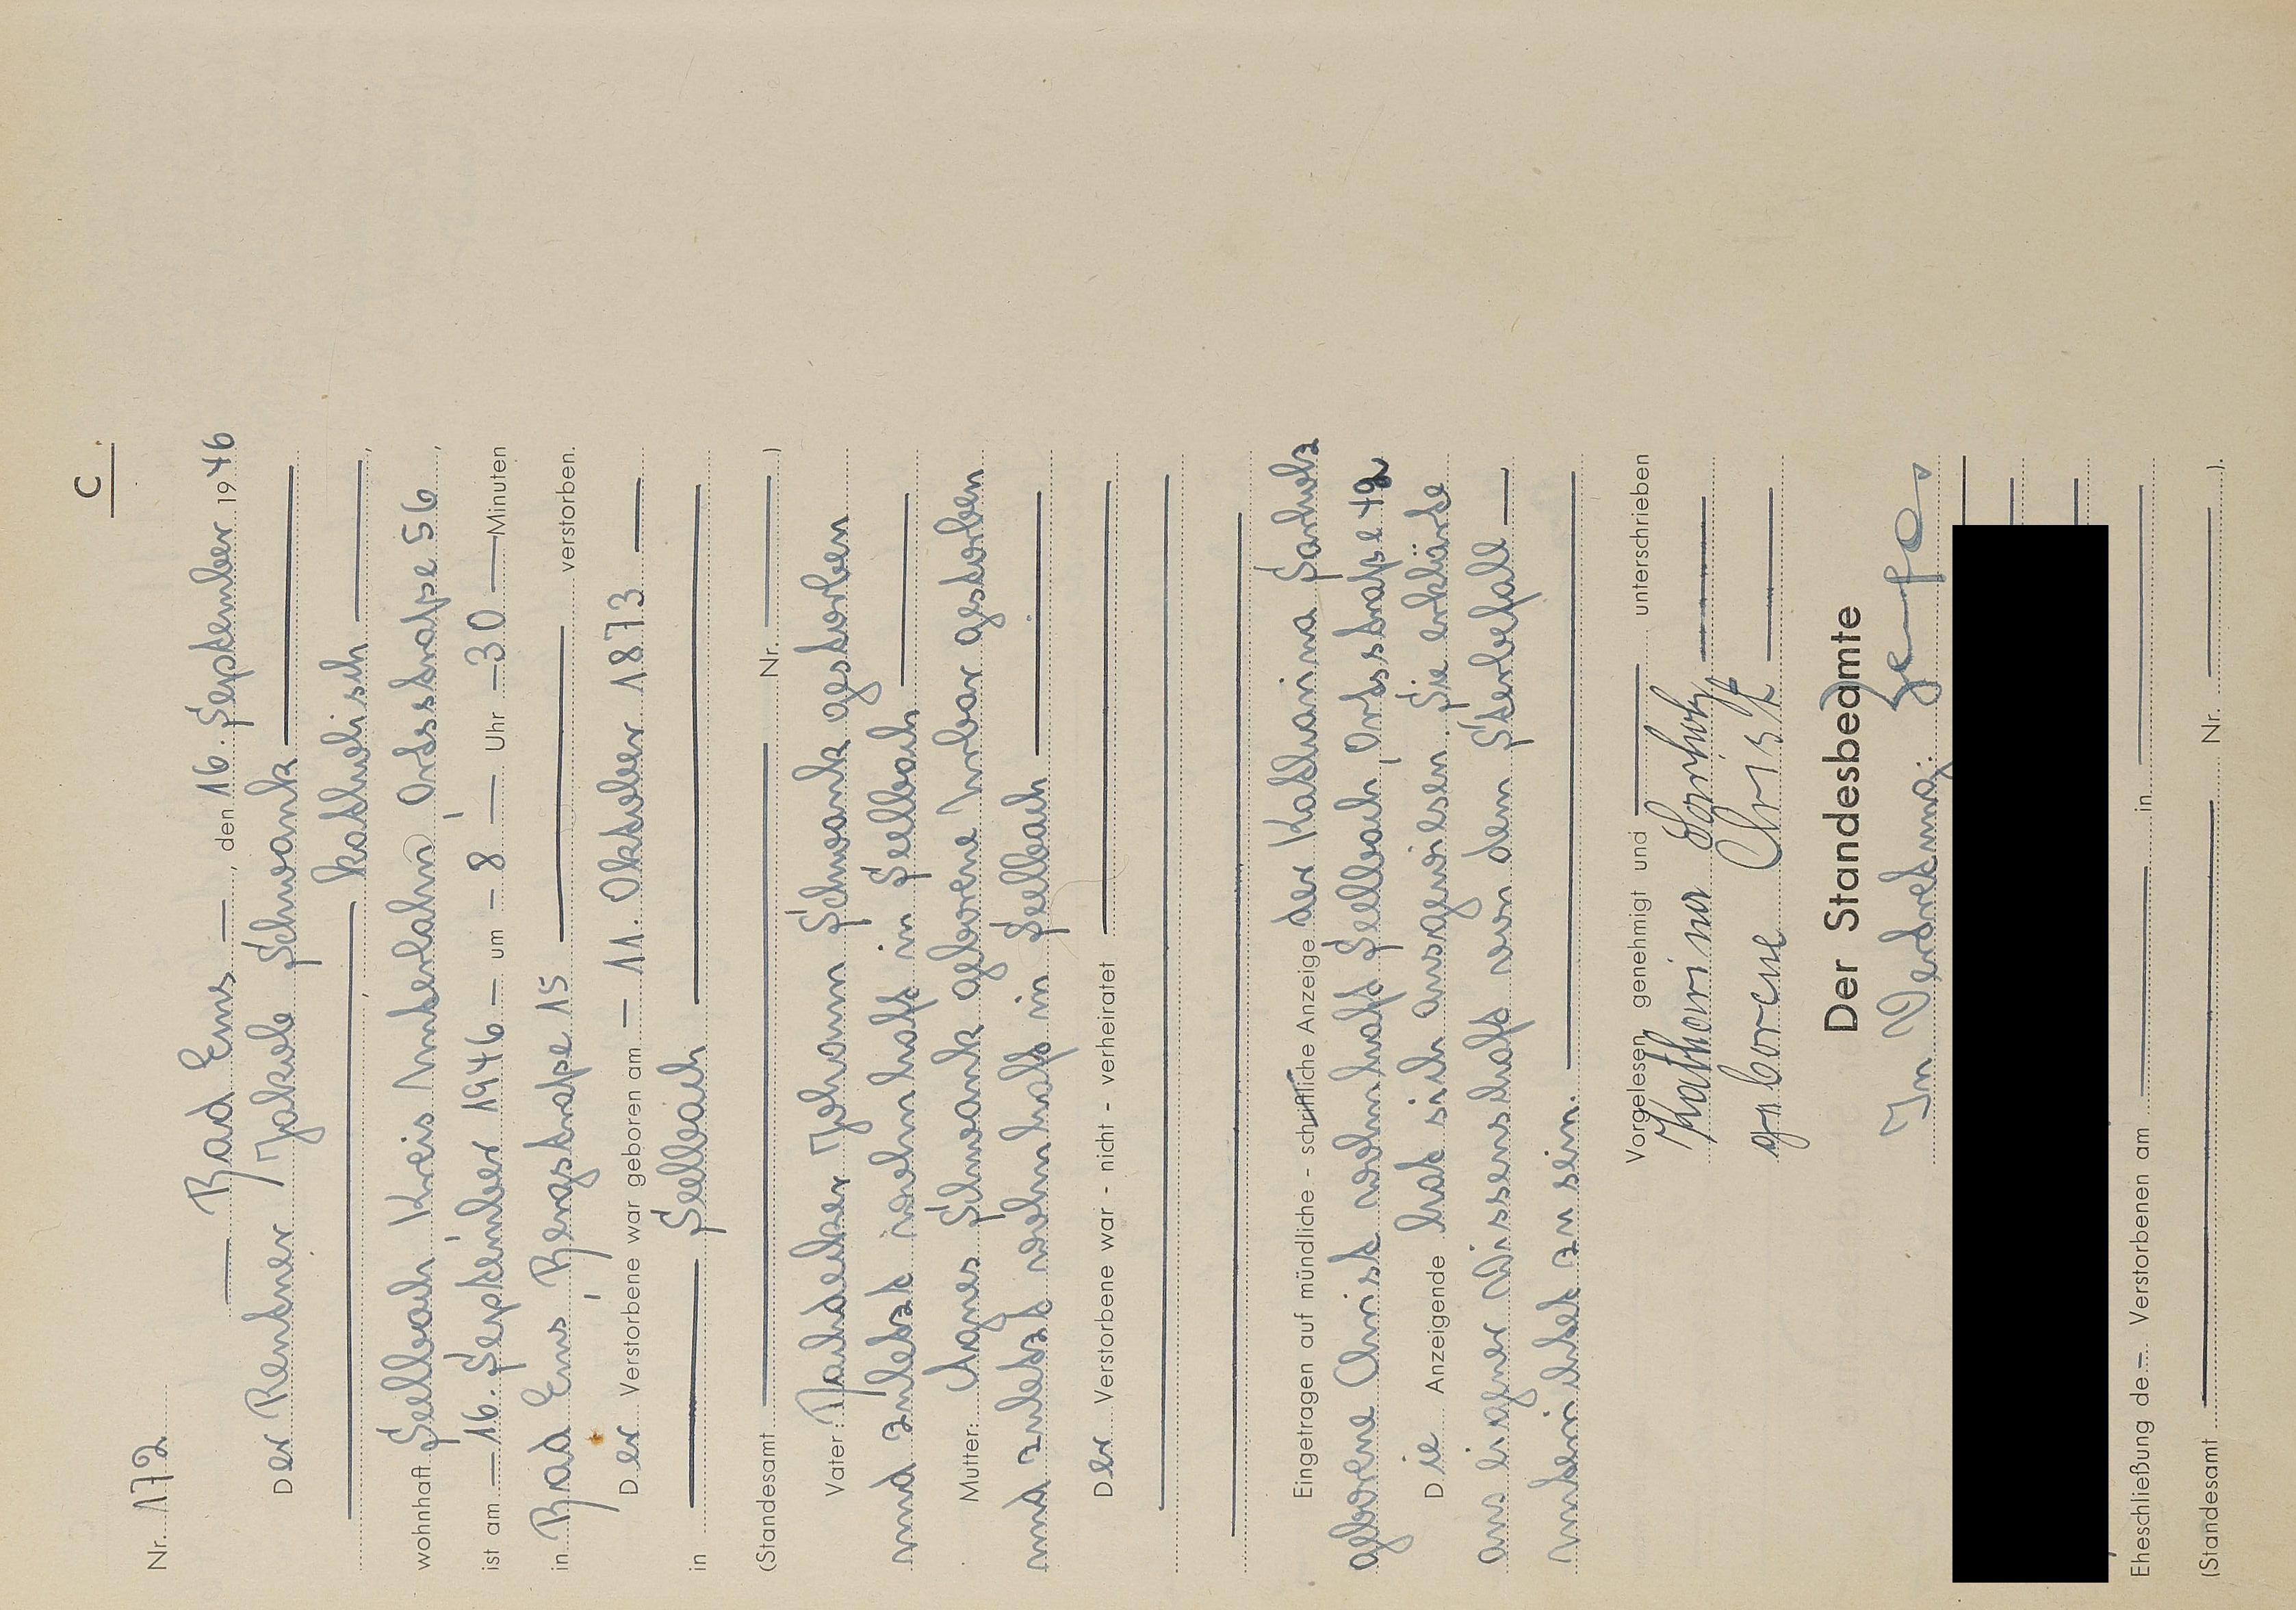 C
Nr. 172
Bad Ems, den 16. September 1946
Der Rentner Jakob Schwank
katholisch,
wohnhaft Seelbach Kreis Unterlahn Ortsstraße 56,
ist am 16. September 1946 um 8 Uhr 30 Minuten
in Bad Ems, Bergstraße 15 verstorben.
Der Verstorbene war geboren am 11. Oktober 1873
in Seelbach
(Standesamt Nr. )
Vater: Johann Schwank gestorben
und zuletzt wohnhaft in Seelbach
Mutter: Agnes Schwank geborene Urbar gestorben
und zuletzt wohnhaft in Seelbach
Der Verstorbene war - nicht - verheiratet
Eingetragen auf mündliche - schriftliche Anzeige der Katharina Sarholz
geborene Christ wohnhaft Seelbach, Ortsstraße 42
Die Anzeigende hat sich ausgewiesen. Sie erklärte
aus eigner Wissenschaft von dem Sterbefall
unterrichtet zu sein.
Vorgelesen, genehmigt und unterschrieben
Katharina Sarholz
geborene Christ
Der Standesbeamte
In Vertretung:
Eheschließung de Verstorbenen am in
(Standesamt Nr. ).